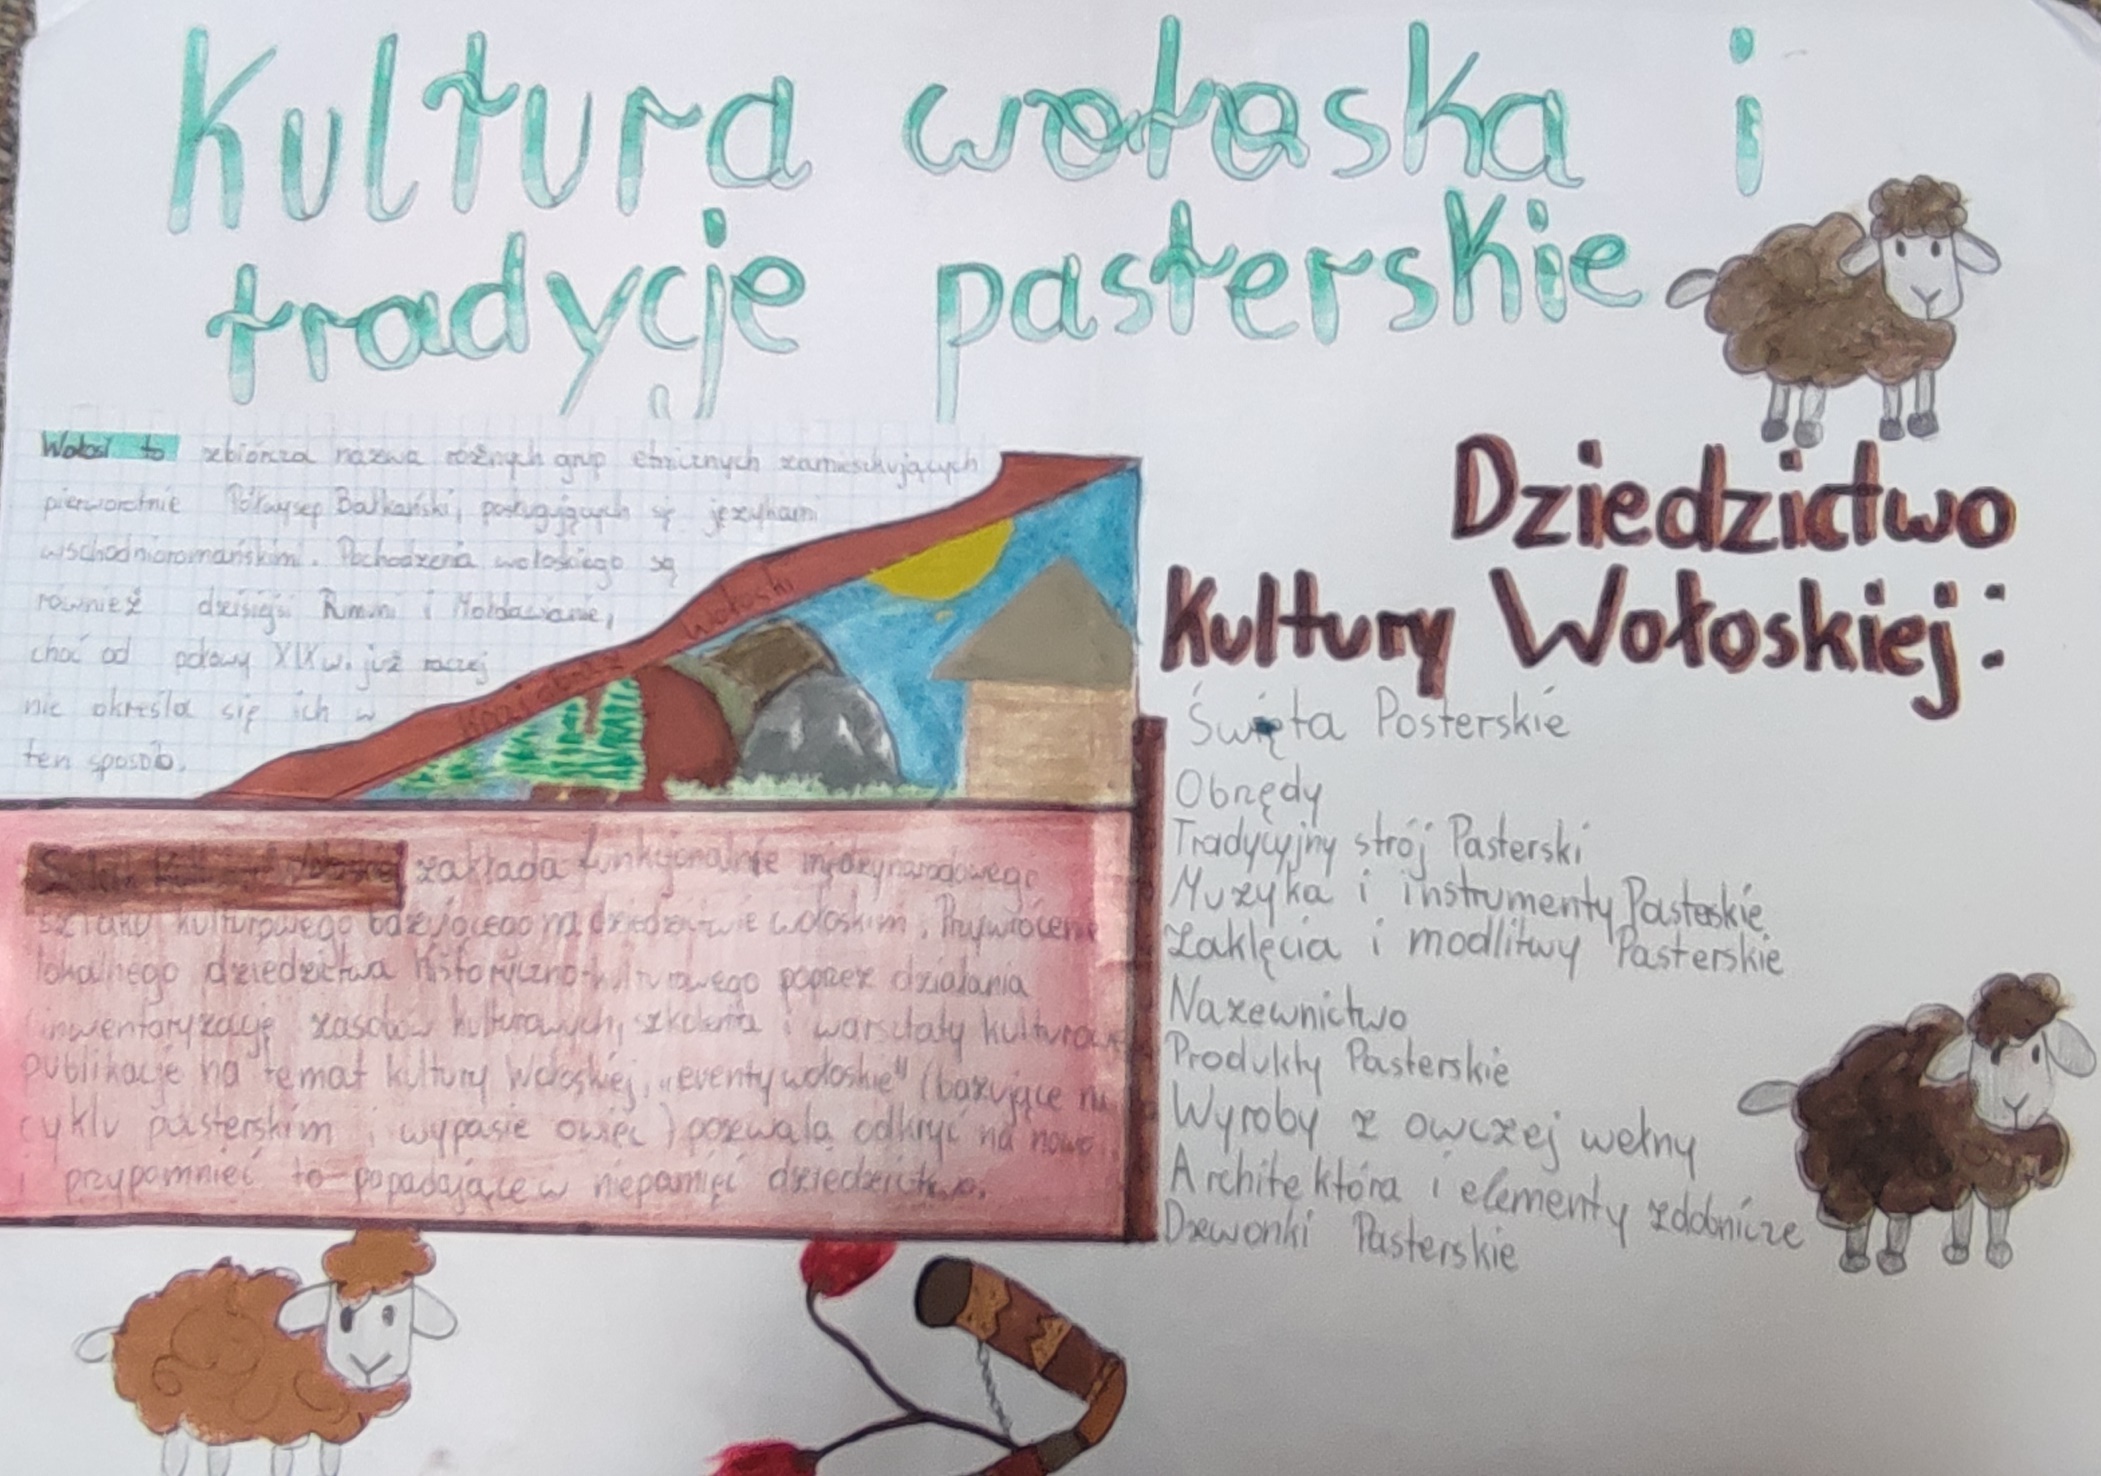 Kultura wołoska i
tradycje pasterskie
Wołosi to zbiorcza nazwa różnych grup etnicznych zamieszkujących
pierworotnie Półwysep Bałkański, posługujących się językami
wschodnioromańskimi. Pochodzenia wołoskiego są
również dzisiejsi Rumuni i Mołdawianie,
choć od połowy XIX w. już raczej
nie określa się ich w
ten sposób.
Krajobraz Wołoski
zakłada funkcjonalnie międzynarodowego
szlaku kulturowego bazującego na dziedzictwie wołoskim. Przywrócenie
lokalnego dziedzictwa historyczno-kulturowego poprzez działania
inwentaryzację zasobów kulturowych, szkolenia i warsztaty kulturowe
publikacje na temat kultury Wołoskiej, "eventy wołoskie" (bazujące na
cyklu pasterskim i wypasie owiec) pozwala odkryć na nowo
i przypomnieć to popadające w niepamięć dziedzictwo.
Dziedzictwo
Kultury Wołoskiej:
Święta Posterskie
Obrzędy
Tradycyjny strój Pasterski
Muzyka i instrumenty Pasteskie
Zaklęcia i modlitwy Pasterskie
Nazewnictwo
Produkty Pasterskie
Wyroby z owczej wełny
Architektóra i elementy zdobnicze
Dzwonki Pasterskie